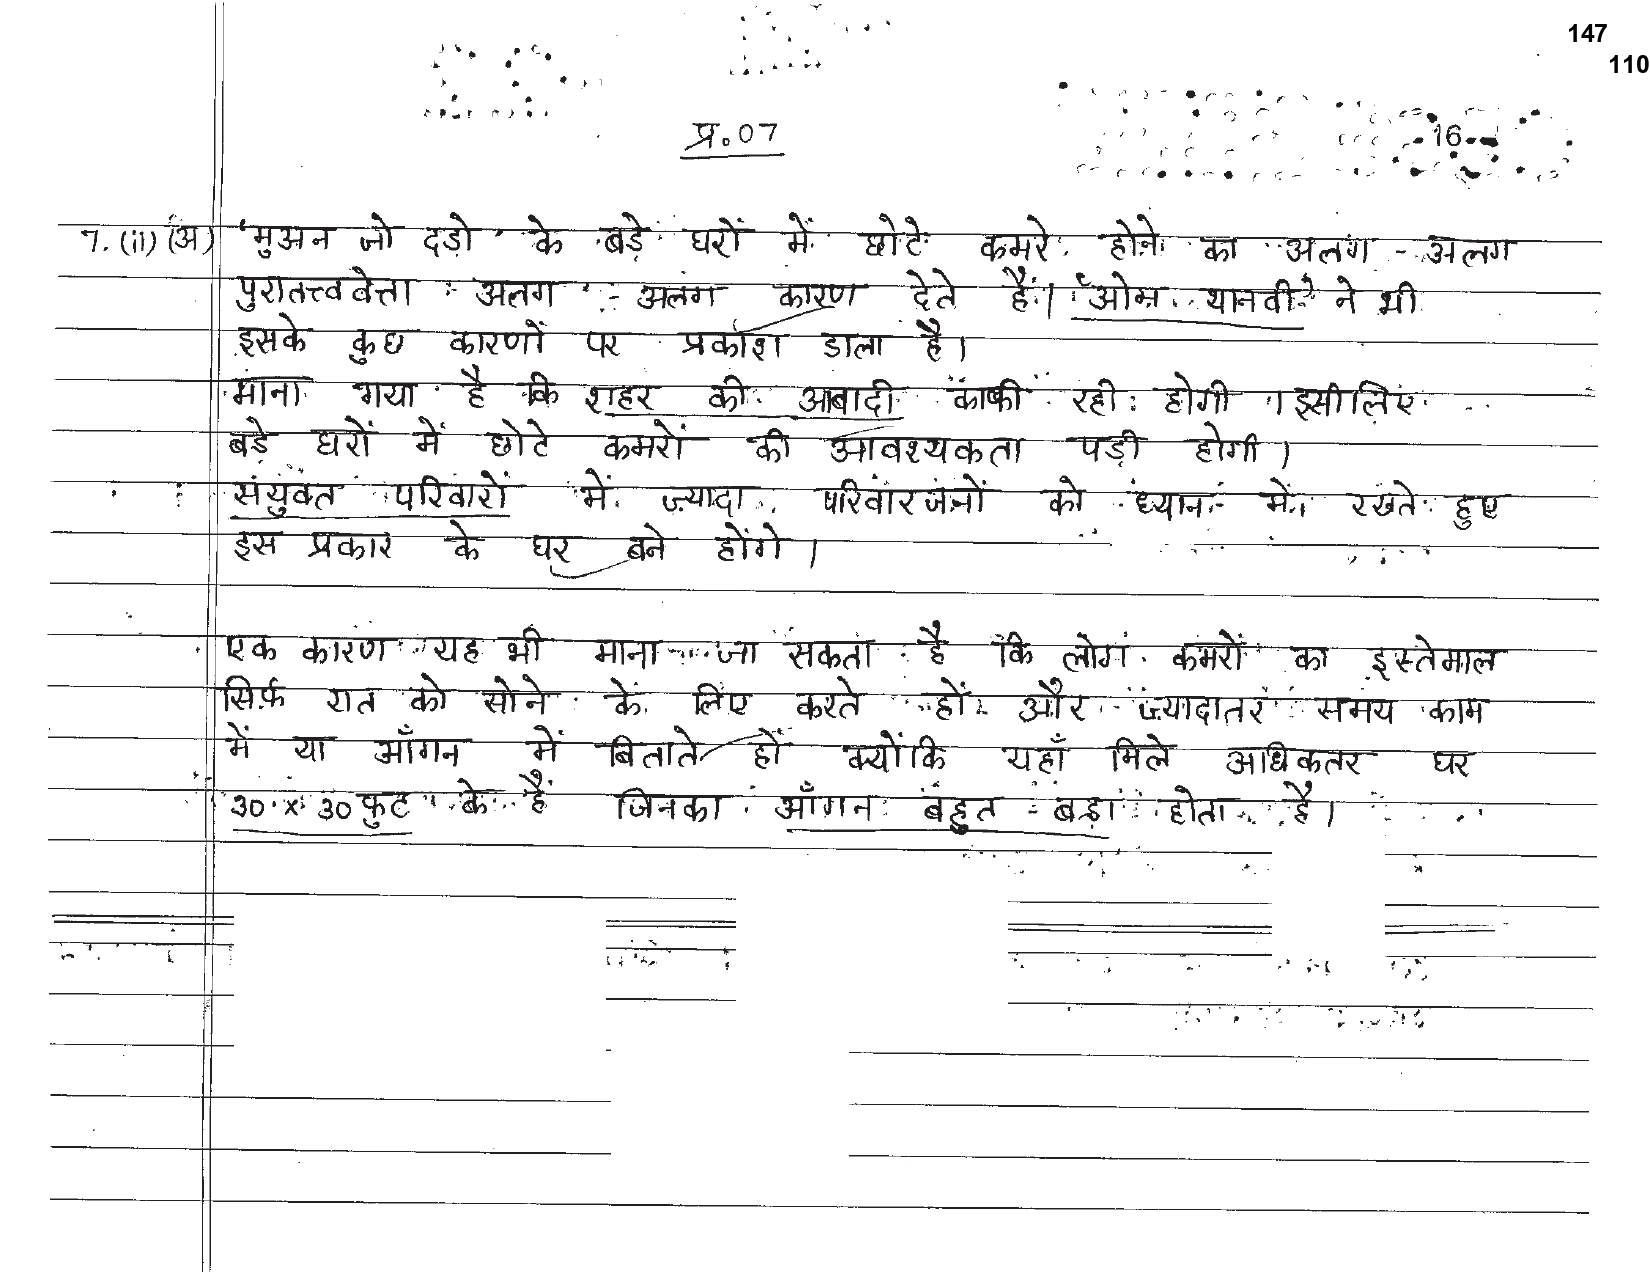 147
110
प्र.07
16
7. (ii) (अ) 'मुअन जो दड़ो' के बड़े घरों में छोटे कमरे होने का अलग - अलग
पुरातत्त्ववेत्ता अलग - अलग कारण देते हैं। "ओम थानवी" ने भी
इसके कुछ कारणों पर प्रकाश डाला है।
माना गया है कि शहर की आबादी काफी रही होगी। इसीलिए
बड़े घरों में छोटे कमरों की आवश्यकता पड़ी होगी।
संयुक्त परिवारों में ज़्यादा परिवारजनों को ध्यान में रखते हुए
इस प्रकार के घर बने होंगे।
एक कारण यह भी माना जा सकता है कि लोग कमरों का इस्तेमाल
सिर्फ़ रात को सोने के लिए करते हों और ज़्यादातर समय काम
में या आँगन में बिताते हों क्योंकि यहाँ मिले अधिकतर घर
30 x 30 फुट के हैं जिनका आँगन बहुत बड़ा होता है।